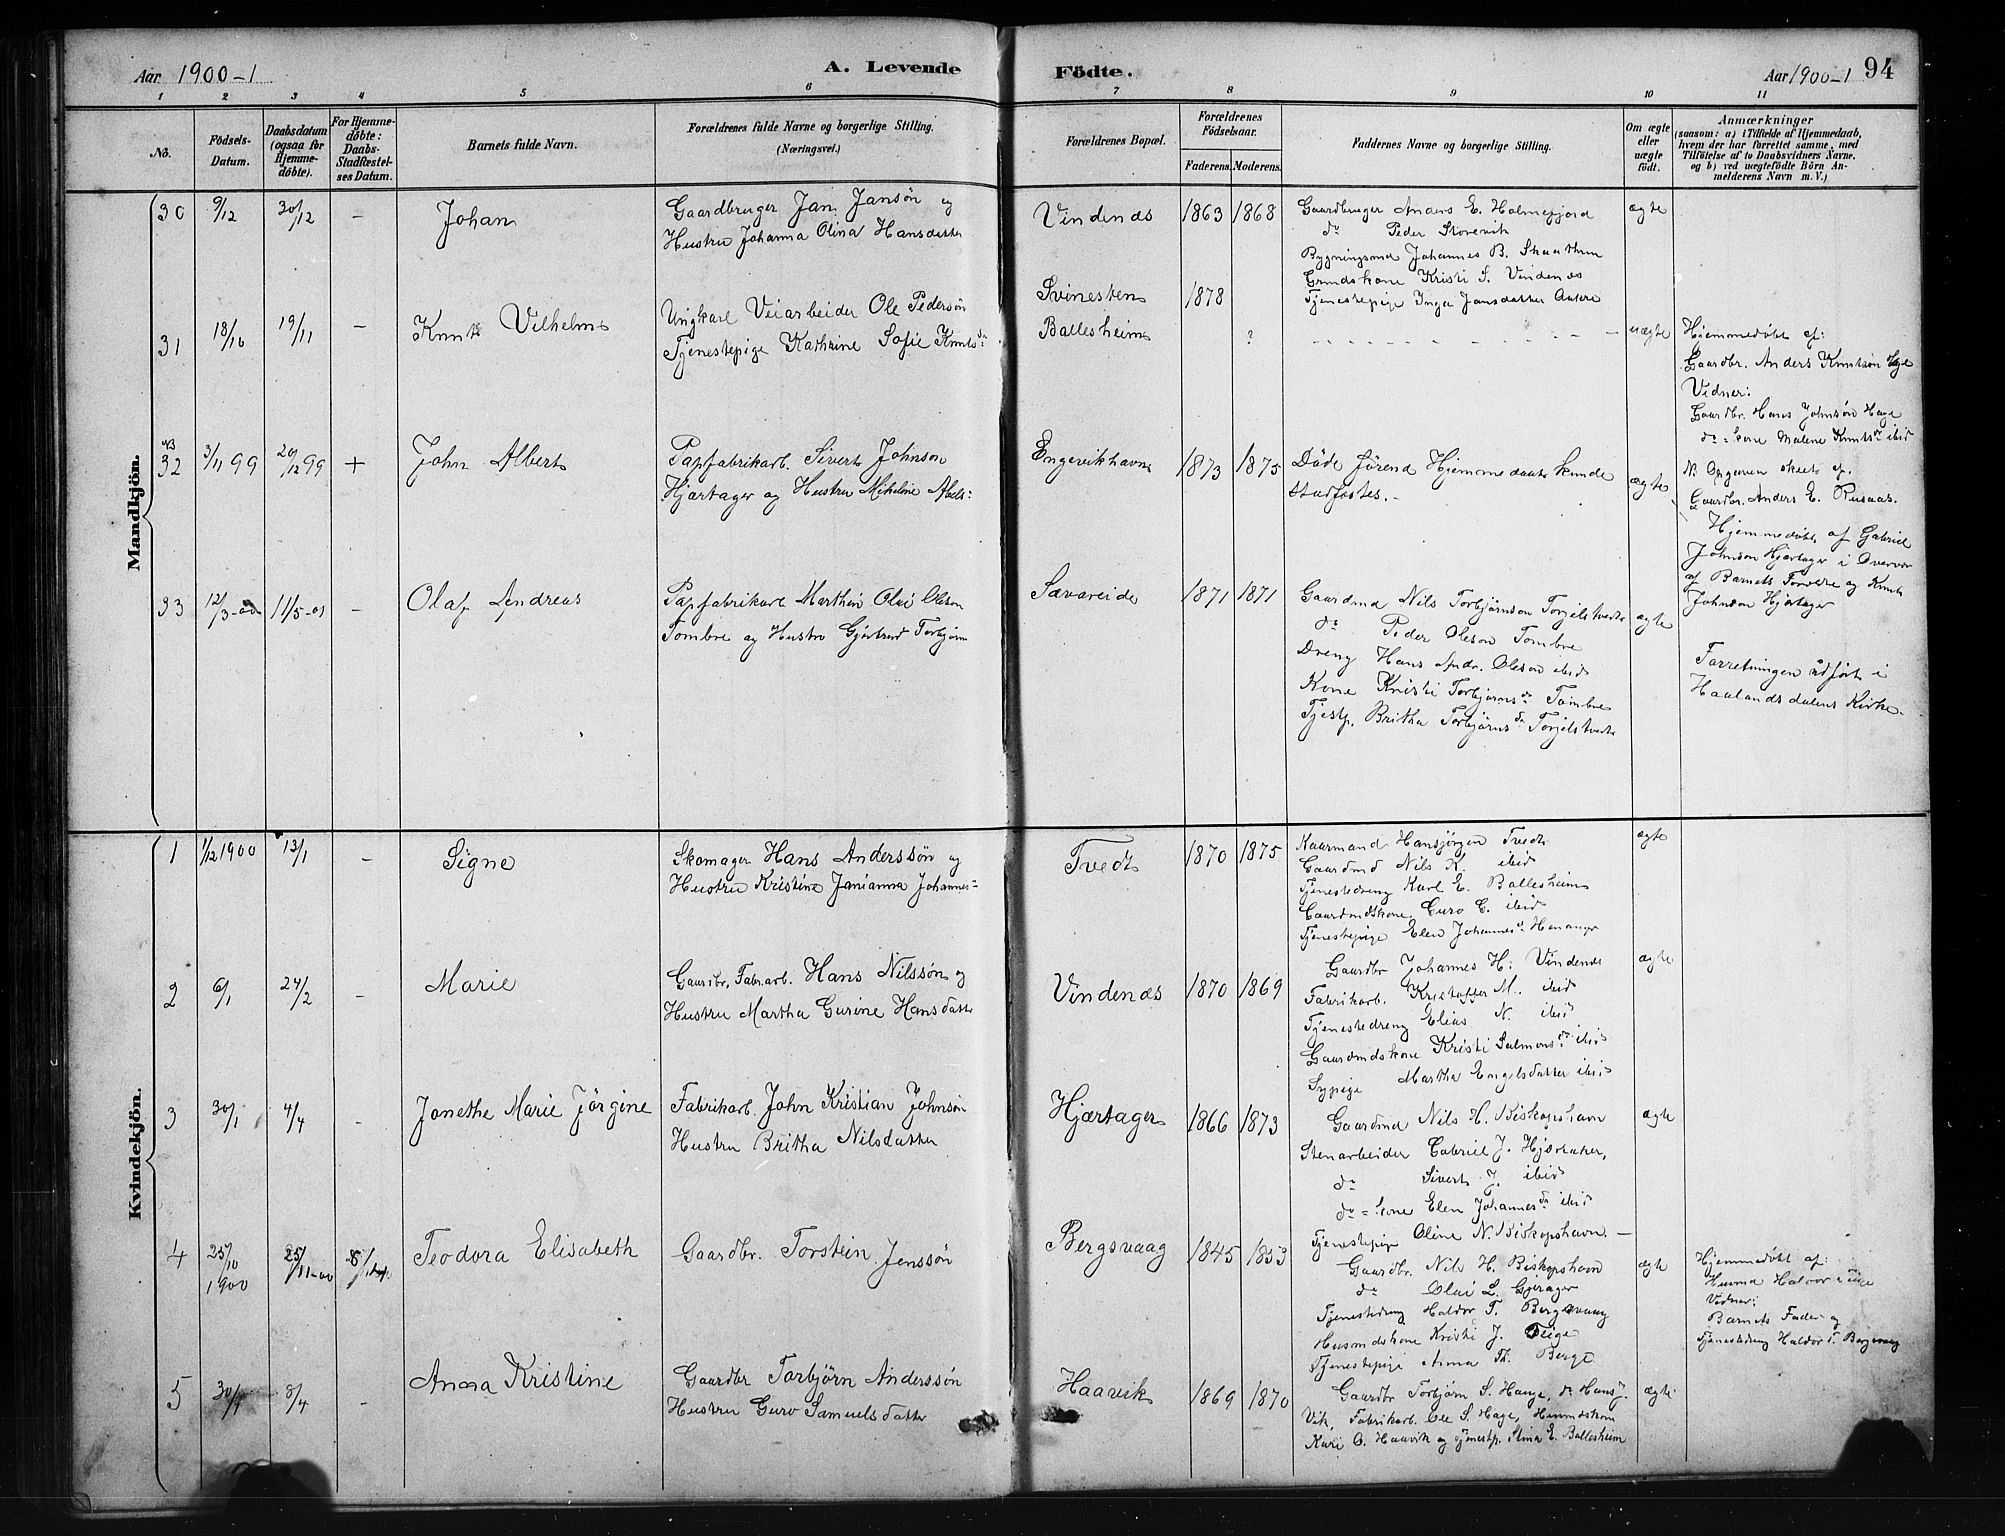 Aar 1900-1
A. Levende
Födte.
Aar 1900-1
94
1 2 3 4 5 6 7 8 9 10 11
No.
Födsels-
Datum.
Daabsdatum
(ogsaa for
Hjemme-
døbte).
For Hjemme-
døbte:
Daabs-
Stadfæstel-
ses Datum.
Barnets fulde Navn.
Forældrenes fulde Navne og borgerlige Stilling.
(Næringsvei.)
Forældrenes Bopæl.
Forældrenes
Födselsaar.
Faderens. Moderens.
Faddernes Navne og borgerlige Stilling.
Om ægte
eller
uægte
födt.
Anmærkninger
(saasom: a) i Tilfælde af Hjemmedaab,
hvem der har forrettet samme, med
Tilföielse af to Daabsvidners Navne,
og b) ved uægtefödte Börn An-
melderens Navn m. V.)
Mandkjön.
30
9/12
30/12
-
Johan
Gaardbruger Jan Jansøn og
Hustru Johanna Olina Hansdatter
Vindenæs
1863
1868
Gaardbruger Anders E. Holmefjord
do Peder Storevik
Bygningsmd Johannes B. Skaathun
Grmdskone Kristi S. Vindenæs
Tjenestepige Inga Jansdatter
ægte
31
18/10
19/11
-
Knut Vilhelm
Ungkarl Veiarbeider Ole Pedersøn
Tjenestepige Kathrine Sofie Knutsdr
Svinesten
Ballesheim
1878
?
uægte
Hjemmedøbt af:
Gaardbr. Anders Knutsøn Hage
Vidner:
Gaardbr. Hans Johnsøn Hage
do = kone Malene Knutsdr ibid
NB
32
3/11 99
20/12 99
+
John Albert
Papfabrikarb. Sivert Johnson
Hjartager og Hustru Mikeline Abels:
Engevikhavn
1873
1875
Døde førend Hjemmedaaben kunde
stadfæstes.-
ægte
N. Opgaven skeet af
Gaardbr. Anders E. Rusaas.
Hjemmedøbt af Gabriel
Johnson Hjartager i Overvær
af Barnets Forældre og Knut
Johnson Hjartager
33
12/3-00
11/5-01
-
Olaf Andreas
Papfabrikarb Marthin Olai Oleson
Tombre og Hustro Gjertrud Torbjørn
Sævareide
1871
1871
Gaardmd Nils Torbjørnson Torjelstvedt
do Peder Oleson Tombre
Dreng Hans Andr. Oleson ibid
Kone Kristi Torbjørnsdr Tombre
Tjestp. Britha Torbjørnsdr Torjelstvedt
ægte
Forretningen udført i
Haalandsdalens Kirke.
Kvindekjön.
1
1/12 1900
13/1
-
Signe
Skomager Hans Anderssøn og
Hustru Kristine Janianna Johannes=
Tvedt
1870
1875
Kaarmand Hansjørgen Tvedt
Gaardmd Nils K. ibid
Tjenestedreng Karl E. Ballesheim
Gaardmdskone Guro C. ibid
Tjenestepige Elen Johannesdr Henanger
ægte
2
6/1
24/2
-
Marie
Gaardbr. Fabrarb. Hans Nilssøn og
Hustru Martha Gurine Hansdatter
Vindenæs
1870
1869
Gaardbr Johannes H. Vindenæs
Fabrikarb. Kristoffer M. ibid
Tjenestedreng Elias N. ibid
Gaardmdskone Kristi Salmonsdr ibid
Sypige Martha Engelsdatter ibid
ægte
3
30/1
4/4
-
Jonethe Marie Jørgine
Fabrikarb. John Kristian Johnsøn
Hustru Britha Nilsdatter
Hjærtager
1866
1873
Gaardmd Nils H. Biskopshavn
Stenarbeider Gabriel J. Hjærtaker,
do Sivert J. ibid
do = kone Elen Johannesdr ibid
Tjenestepige Oline N. Biskopshavn. -
ægte
4
25/10
1900
25/11-00
Teodora Elisabeth
Gaardbr. Torstein Jenssøn
Bergsvaag
1845
1853
Gaardbr. Nils H. Biskopshavn
do Olai L. Gjerager
Tjenestedreng Haldor T. Bergsvaag
Husmdskone Kristi J. Teige
Tjenestepige Anna Th. Berge
ægte
Hjemmedøbt af:
Husmd Halvor Teige
Vidner:
Barnets Fader og
Tjenestedreng Haldor T. Bergsvaag
5
30/1
8/4
-
Anna Kristine
Gaardbr Torbjørn Anderssøn
Hustru Guro Samuelsdatter
Haavik
1869
1870
Gaardbr Torbjørn S. Hauge, do Hans J.
Vik, Fabrikarb. Ole S. Hage, Husmdskone
Kari O. Haavik og tjenestp. Stina E. Ballesheim
ægte